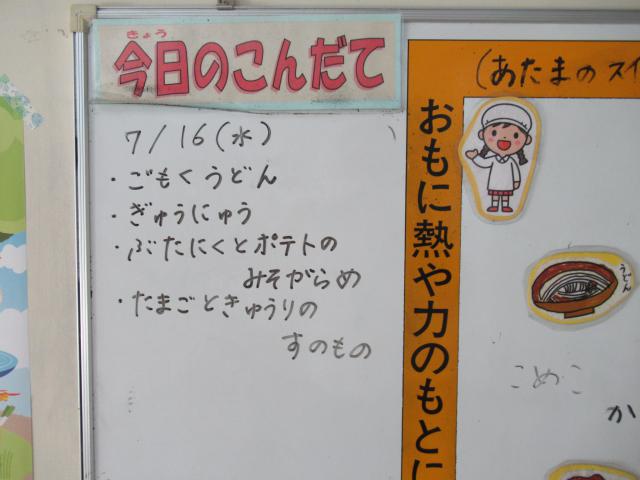 きょう
今日のこんだて
7/16(水)
・ごもくうどん
・ぎゅうにゅう
・ぶたにくとポテトの
みそがらめ
・たまごときゅうりの
すのもの
(あたまのスイ
おもに熱や力のもとに
うどん
こめこ
か